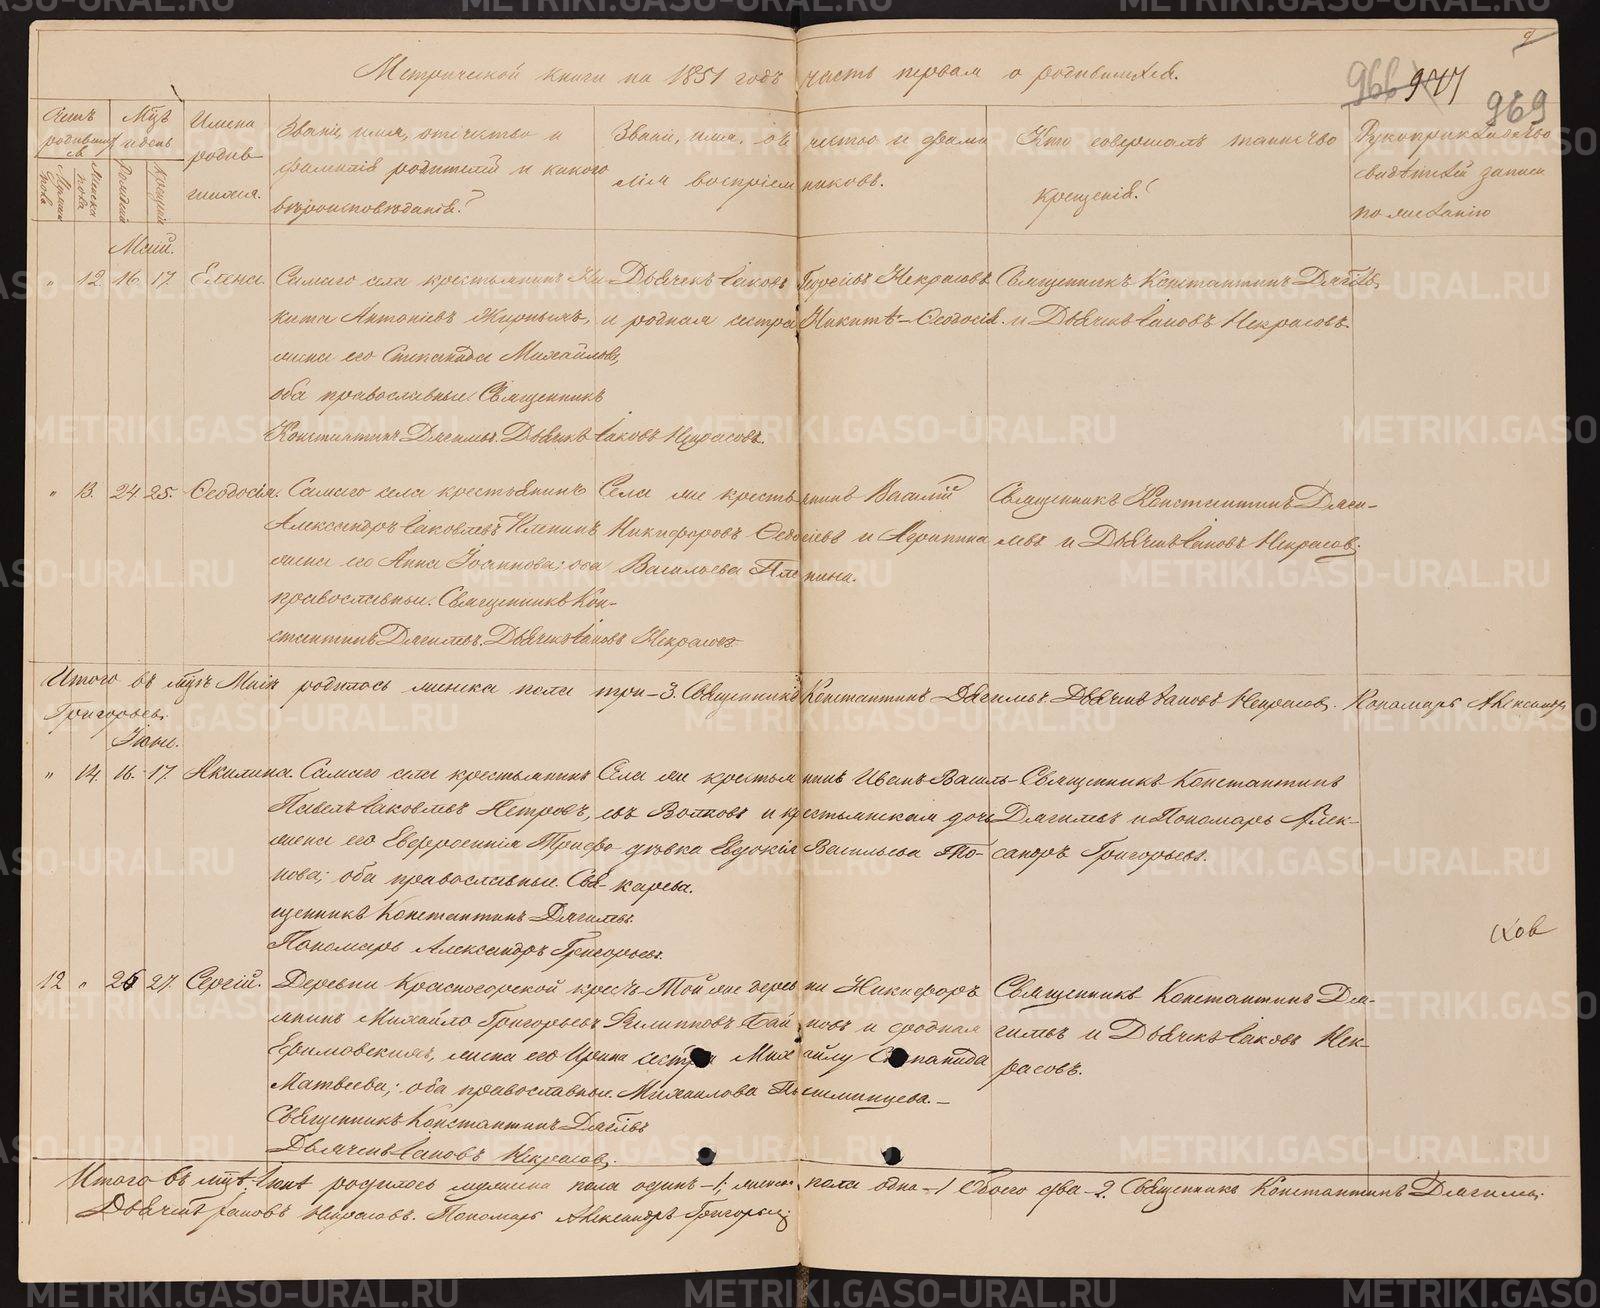 Метрической книги на 1851 годъ часть первая о родившихся.
9
966 971
969
Счетъ родившихся
Мужеска пола
Женска пола
Мцъ и день
Рожденія
Крещенія
Имена родившихся.
Званіе, имя, отечество и фамилія родителей и какого вѣроисповѣданія?
Званіе, имя, отчество и фамилія воспріемниковъ.
Кто совершалъ таинство крещенія?
Рукоприкладство свидѣтелей записи по желанію
Маій.
" 12 16. 17 Елена.
Самаго села крестьянинъ Никита Антоніевъ
жена его Степанида Михайлова,
оба православные. Священникъ
Константинъ Дягилевъ. Дьячекъ Іаковъ Некрасовъ.
Дьячекъ Іаковъ Некрасовъ
и родная сестра Никитѣ Ѳеодосія.
Священникъ Константинъ Дягилевъ
и Дьячекъ Іаковъ Некрасовъ.
" 13. 24. 25. Ѳеодосія.
Самаго села крестьянинъ
Александръ Іаковлевъ
жена его Анна Іоаннова; оба
православные. Священникъ Кон-
стантинъ Дягилевъ. Дьячекъ Іаковъ Некрасовъ
Села же крестьянинъ Василій
Никифоровъ и Агрипина
Васильева
Священникъ Константинъ Дяги-
левъ и Дьячекъ Іаковъ Некрасовъ.
Итого въ мцѣ Маіѣ родилось женска пола три - 3. Священникъ Константинъ Дягилевъ. Дьячекъ Іаковъ Некрасовъ. Пономарь Александръ
Григорьевъ.
Іюнь.
" 14. 16. 17 Акилина.
Самаго села крестьянинъ
Павелъ Іаковлевъ Петровъ,
жена его Евфросинія Трифо-
нова; оба православные. Свя-
щенникъ Константинъ Дягилевъ.
Пономарь Александръ Григорьевъ.
Села же крестьянинъ Иванъ Василь-
евъ Волковъ и крестьянская дочь
дѣвка Евдокія Васильева То-
карева.
Священникъ Константинъ
Дягилевъ и Пономарь Алек-
сандръ Григорьевъ.
12 " 26 27. Сергій.
Деревни Красногорской крестьянинъ
Михайло Григорьевъ
жена его Ирина
Матвеева; оба православные.
Священникъ Константинъ Дягилевъ
Дьячекъ Іаковъ Некрасовъ.
Той же деревни Никифоръ
Филипповъ и родная
сестра Михайлу Степанида
Михайлова Пышминцева.
Священникъ Константинъ Дя-
гилевъ и Дьячекъ Іаковъ Нек-
расовъ.
Итого въ мцѣ Іюнѣ родилось мужеска пола одинъ - 1; женска пола одна - 1 Обоего два - 2. Священникъ Константинъ Дягилевъ.
Дьячекъ Іаковъ Некрасовъ. Пономарь Александръ Григорьевъ.
METRIKI.GASO-URAL.RU